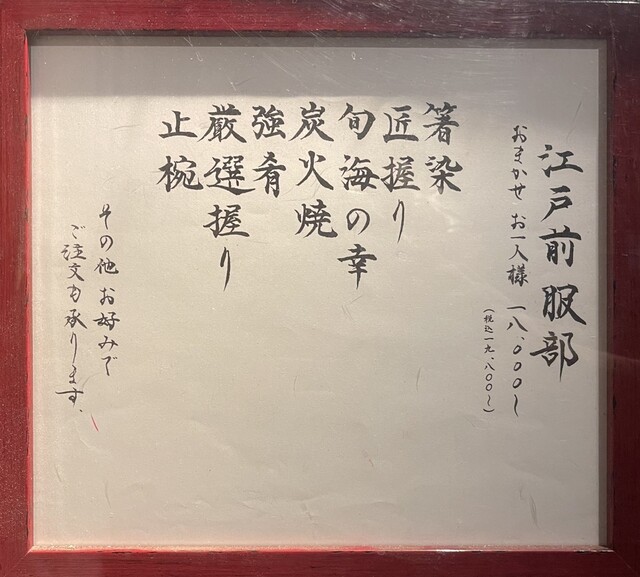 江戸前 服部
おまかせ お一人様 一八,〇〇〇〜
(税込一九,八〇〇〜)
箸染
匠握り
旬海の幸
炭火焼
強肴
厳選握り
止椀
その他 お好みで
ご注文も承ります.